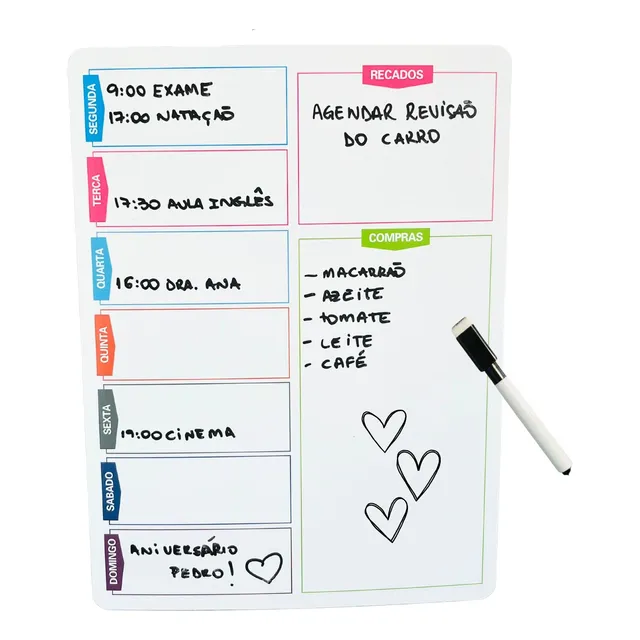 SEGUNDA
9:00 EXAME
17:00 NATAÇÃO
TERCA
17:30 AULA INGLÊS
QUARTA
16:00 DRA. ANA
QUINTA
SEXTA
19:00 CINEMA
SABADO
DOMINGO
ANIVERSÁRIO
PEDRO!
RECADOS
AGENDAR REVISÃO
DO CARRO
COMPRAS
- MACARRÃO
- AZEITE
- TOMATE
- LEITE
- CAFÉ